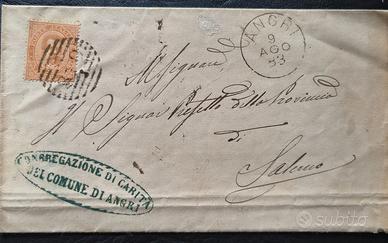 ANGRI
9
AGO
83
Al Signor Prefetto della Provincia
di
Salerno
CONGREGAZIONE DI CARITÀ
DEL COMUNE DI ANGRI
subito